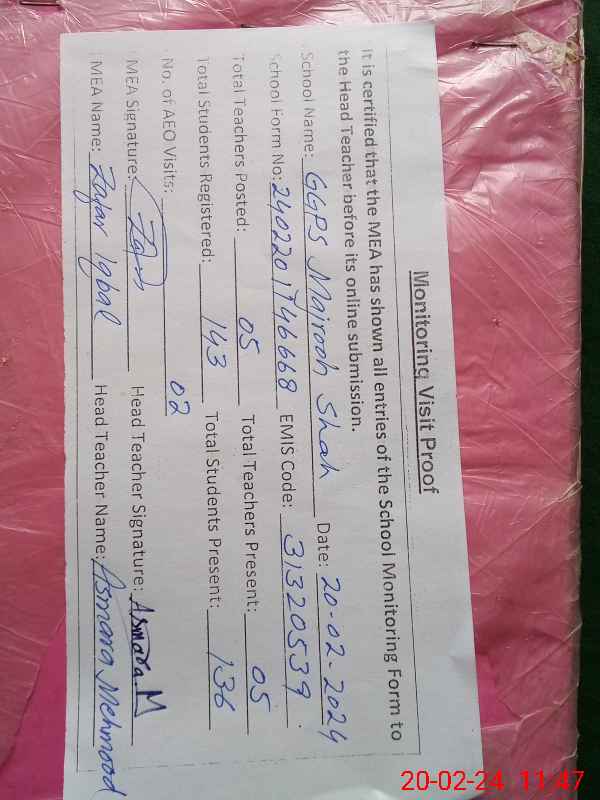 Monitoring Visit Proof
It is certified that the MEA has shown all entries of the School Monitoring Form to
the Head Teacher before its online submission.
School Name: GGPS Mairooh Shah Date: 20-02-2024
School Form No: 2402201746668 EMIS Code: 31320539
Total Teachers Posted: 05 Total Teachers Present: 05
Total Students Registered: 143 Total Students Present: 136
No. of AEO Visits: 02
MEA Signature: Zafar Head Teacher Signature: Asmara M
MEA Name: Zafar Iqbal Head Teacher Name: Asmara Mehmood
20-02-24 11:47